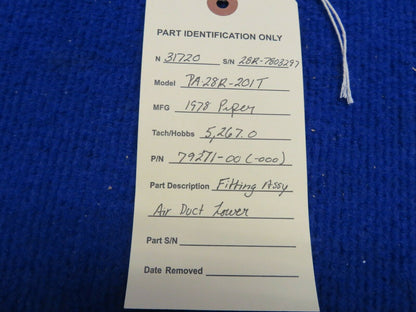 PART IDENTIFICATION ONLY
N 31720 S/N 28R-7803297
Model PA-28R-201T
MFG 1978 Piper
Tach/Hobbs 5,267.0
P/N 79271-00 (-000)
Part Description Fitting Assy
Air Duct Lower
Part S/N
Date Removed